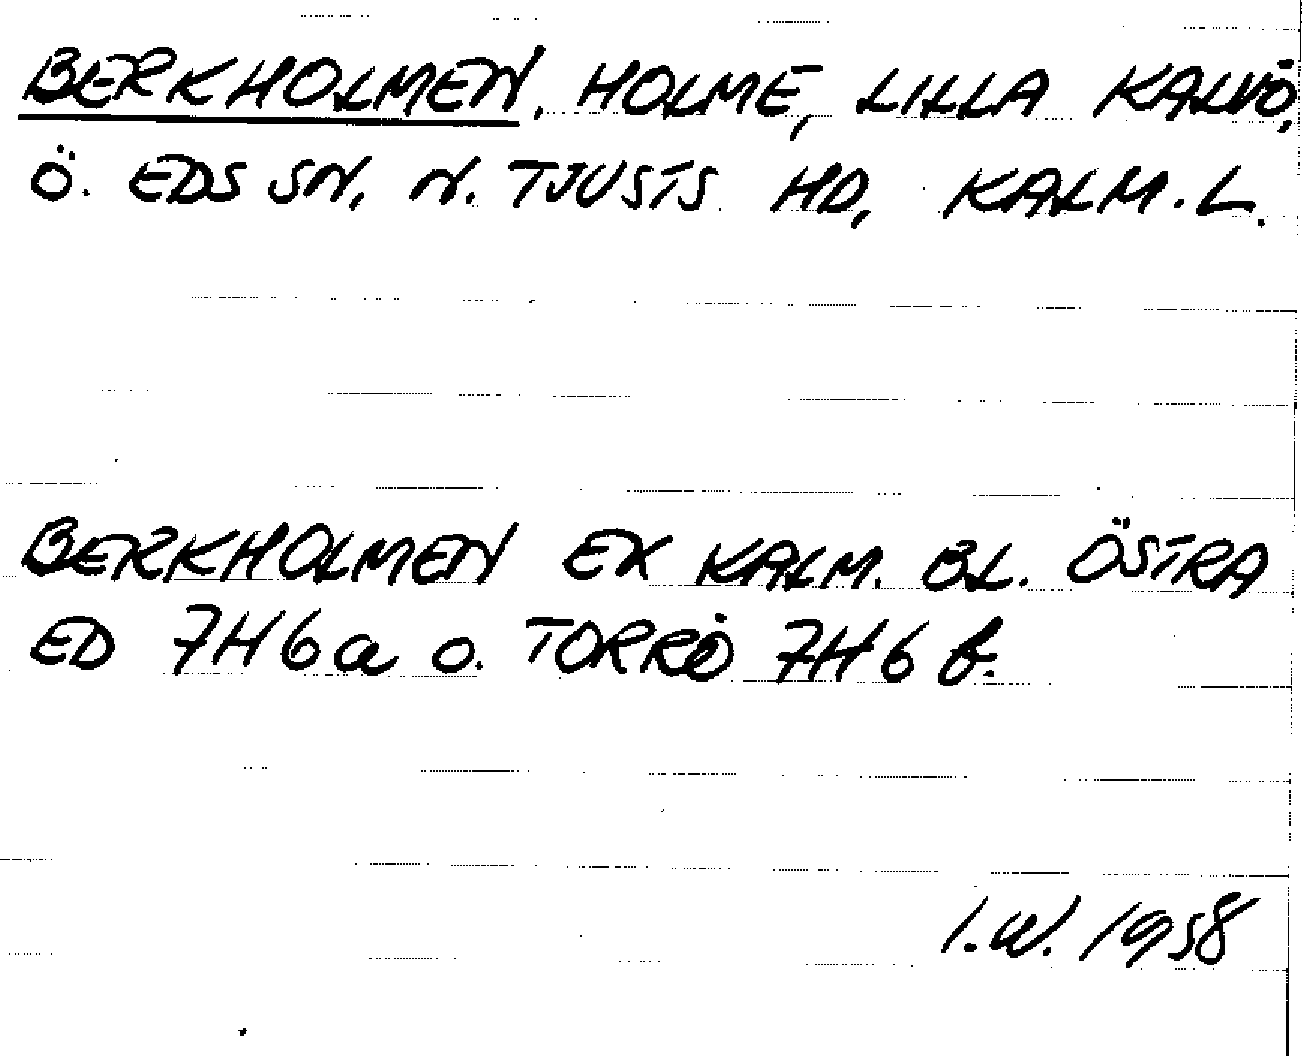 BERKHOLMEN, HOLME, LILLA KALVÖ,
Ö. EDS SN, N. TJUSTS HD, KALM. L.
BERKHOLMEN EK KALM. BL. ÖSTRA
ED 7H6a o. TORRÖ 7H6 b.
I.W. 1958